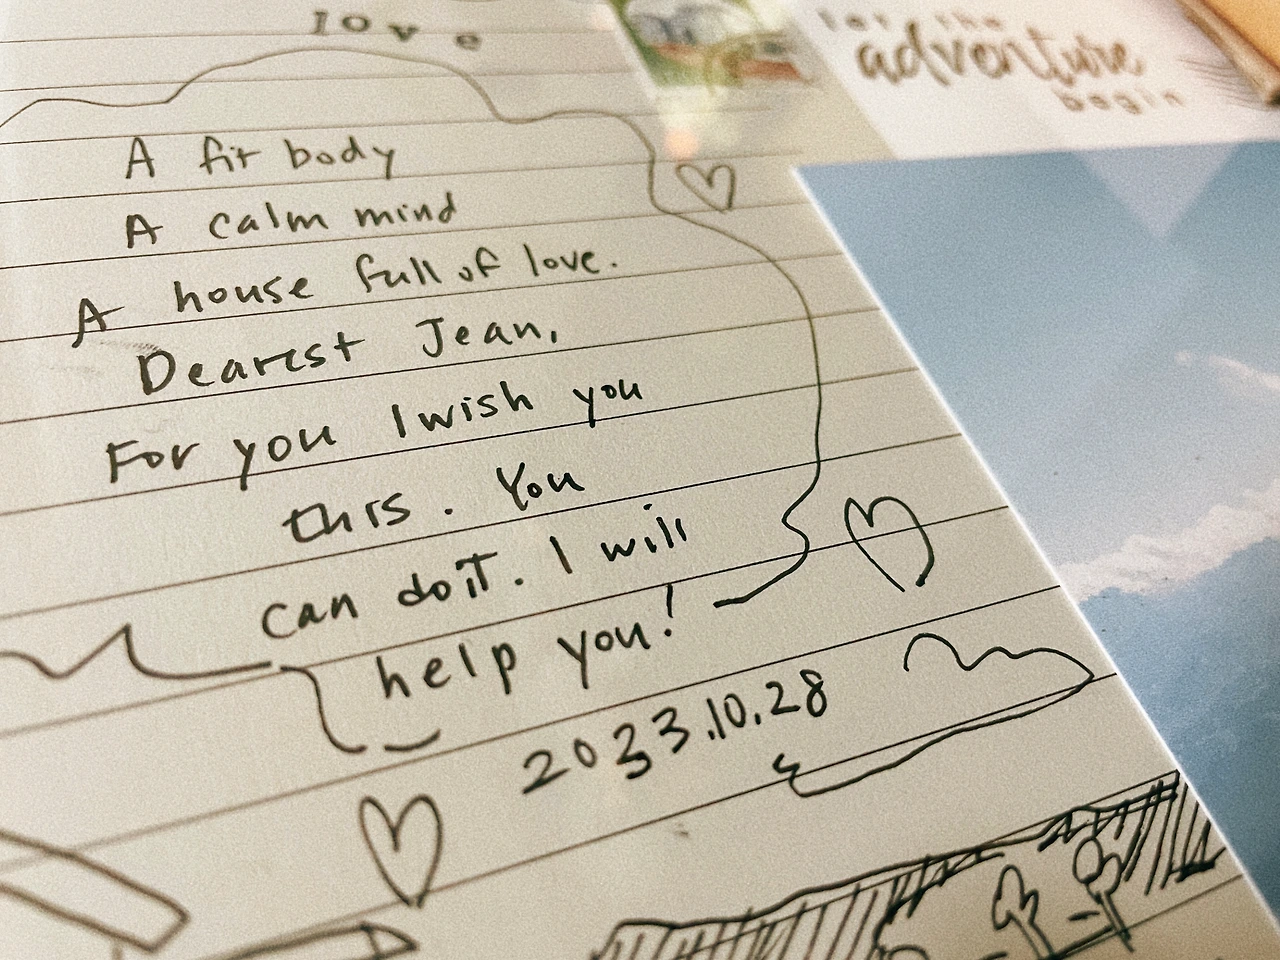 love
let the
adventure
begin
A fit body
A calm mind
A house full of love.
Dearest Jean,
For you I wish you
this. You
can do it. I will
help you!
2023.10.28